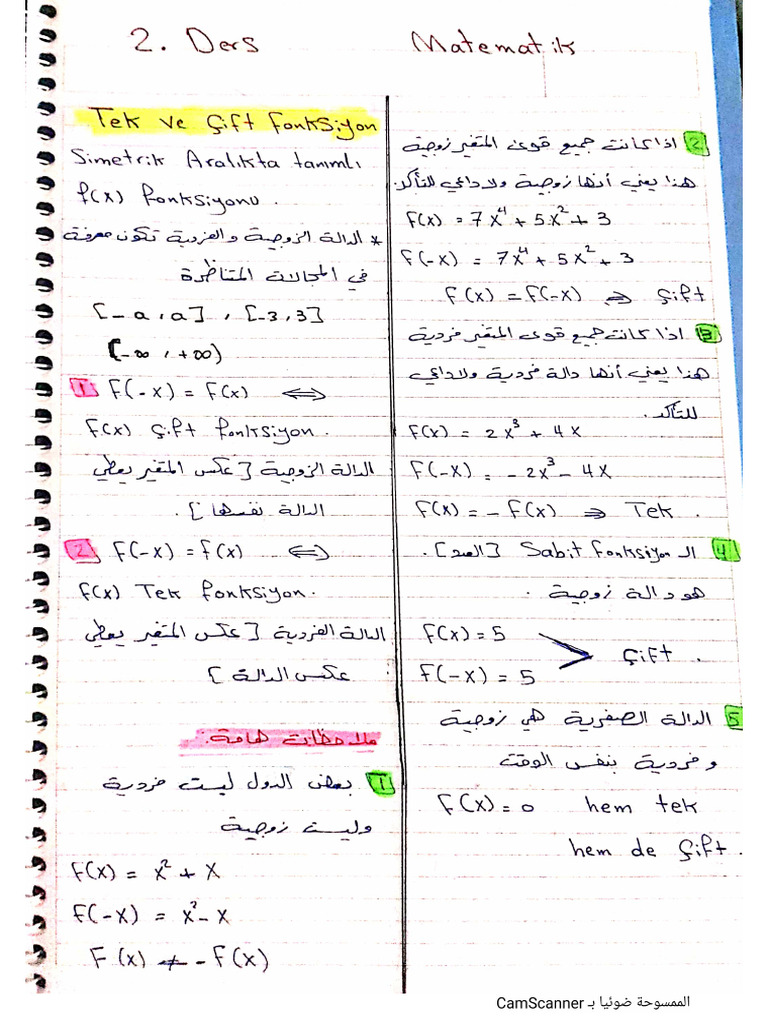 2. Ders Matematik
Tek ve Çift fonksiyon
Simetrik Aralıkta tanımlı
f(x) fonksiyonu.
* الدالة الزوجية والفردية تكون معرفة
في المجالات المتناظرة
[-a, a], [-3, 3]
(-∞, +∞)
1 F(-x) = F(x) ⟺
F(x) Çift fonksiyon.
الدالة الزوجية [عكس المتغير يعطي
الدالة نفسها].
2 F(-x) = f(x) ⟺
f(x) Tek fonksiyon.
الدالة الفردية [عكس المتغير يعطي
عكس الدالة]
ملاحظات هامة:
1 بعض الدول ليست فردية
وليست زوجية
F(x) = x² + x
F(-x) = x² - x
F(x) ≠ - F(x)
2 اذا كانت جميع قوى المتغير زوجية
هذا يعني أنها زوجية ولا داعي للتأكد.
F(x) = 7x⁴ + 5x² + 3
F(-x) = 7x⁴ + 5x² + 3
F(x) = F(-x) ⇒ Çift
3 اذا كانت جميع قوى المتغير فردية
هذا يعني أنها دالة فردية ولا داعي
للتأكد.
F(x) = 2x³ + 4x
F(-x) = - 2x³ - 4x
F(x) = - F(x) ⇒ Tek.
4 الـ Sabit fonksiyon [العدد].
هو دالة زوجية.
F(x) = 5
Çift.
F(-x) = 5
5 الدالة الصفرية هي زوجية
و فردية بنفس الوقت
F(x) = 0 hem tek
hem de Çift.
الممسوحة ضوئيا بـ CamScanner